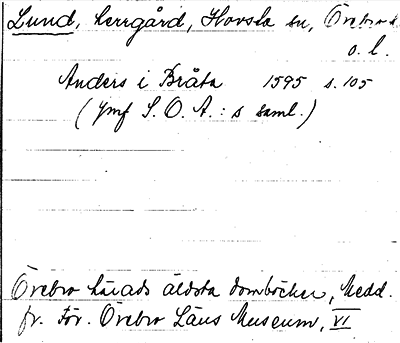 Lund, herrgård, Hovsta sn, Örebro
o. l.
Anders i Bråta 1595 s. 105
(jmf S. O. A.: s saml.)
Örebro härads äldsta domböcker, Medd.
fr. För. Örebro Läns Museum, VI